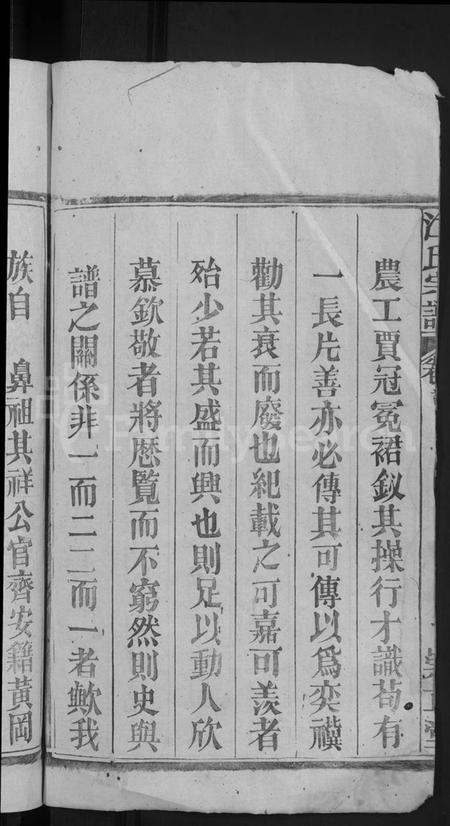 農工賈冠冕裙釵其操行才識茍有
一長片善亦必傳其可傳以爲奕禩
勸其衰而廢也紀載之可嘉可羨者
殆少若其盛而興也則足以動人欣
慕欽敬者將歷覽而不窮然則史與
譜之關係非一而二二而一者歟我
族自 鼻祖其祥公官齊安籍黃岡